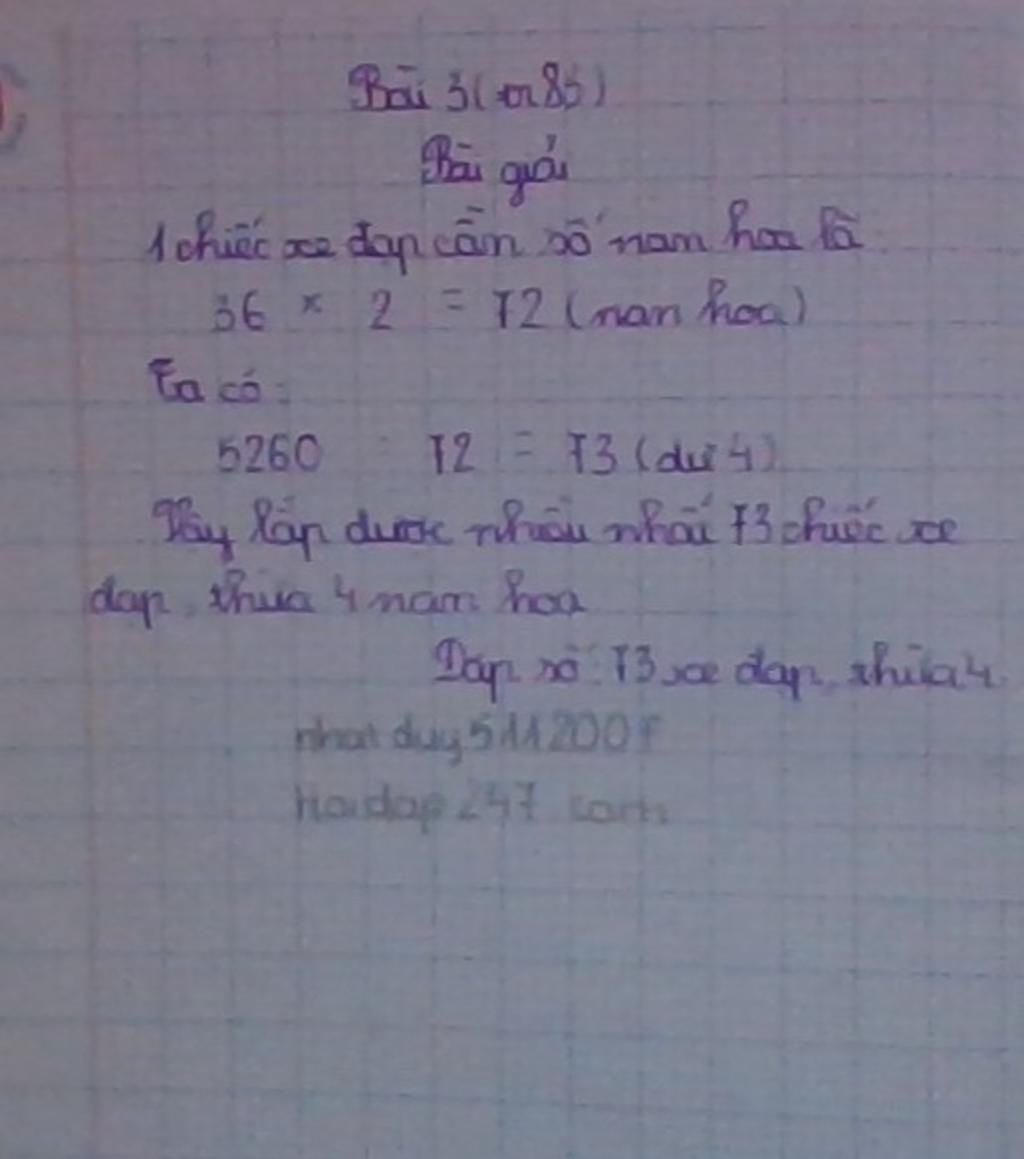 Bài 3 (tr 83)
Bài giải
1 chiếc xe đạp cần số nam hoa là
36 × 2 = 72 (nan hoa)
Ta có:
5260 : 72 = 73 (dư 4)
Vậy lắp được nhiều nhất 73 chiếc xe
đạp, thừa 4 nam hoa
Đáp số: 73 xe đạp, thừa 4
nhatduy5112007
hoidap247.com